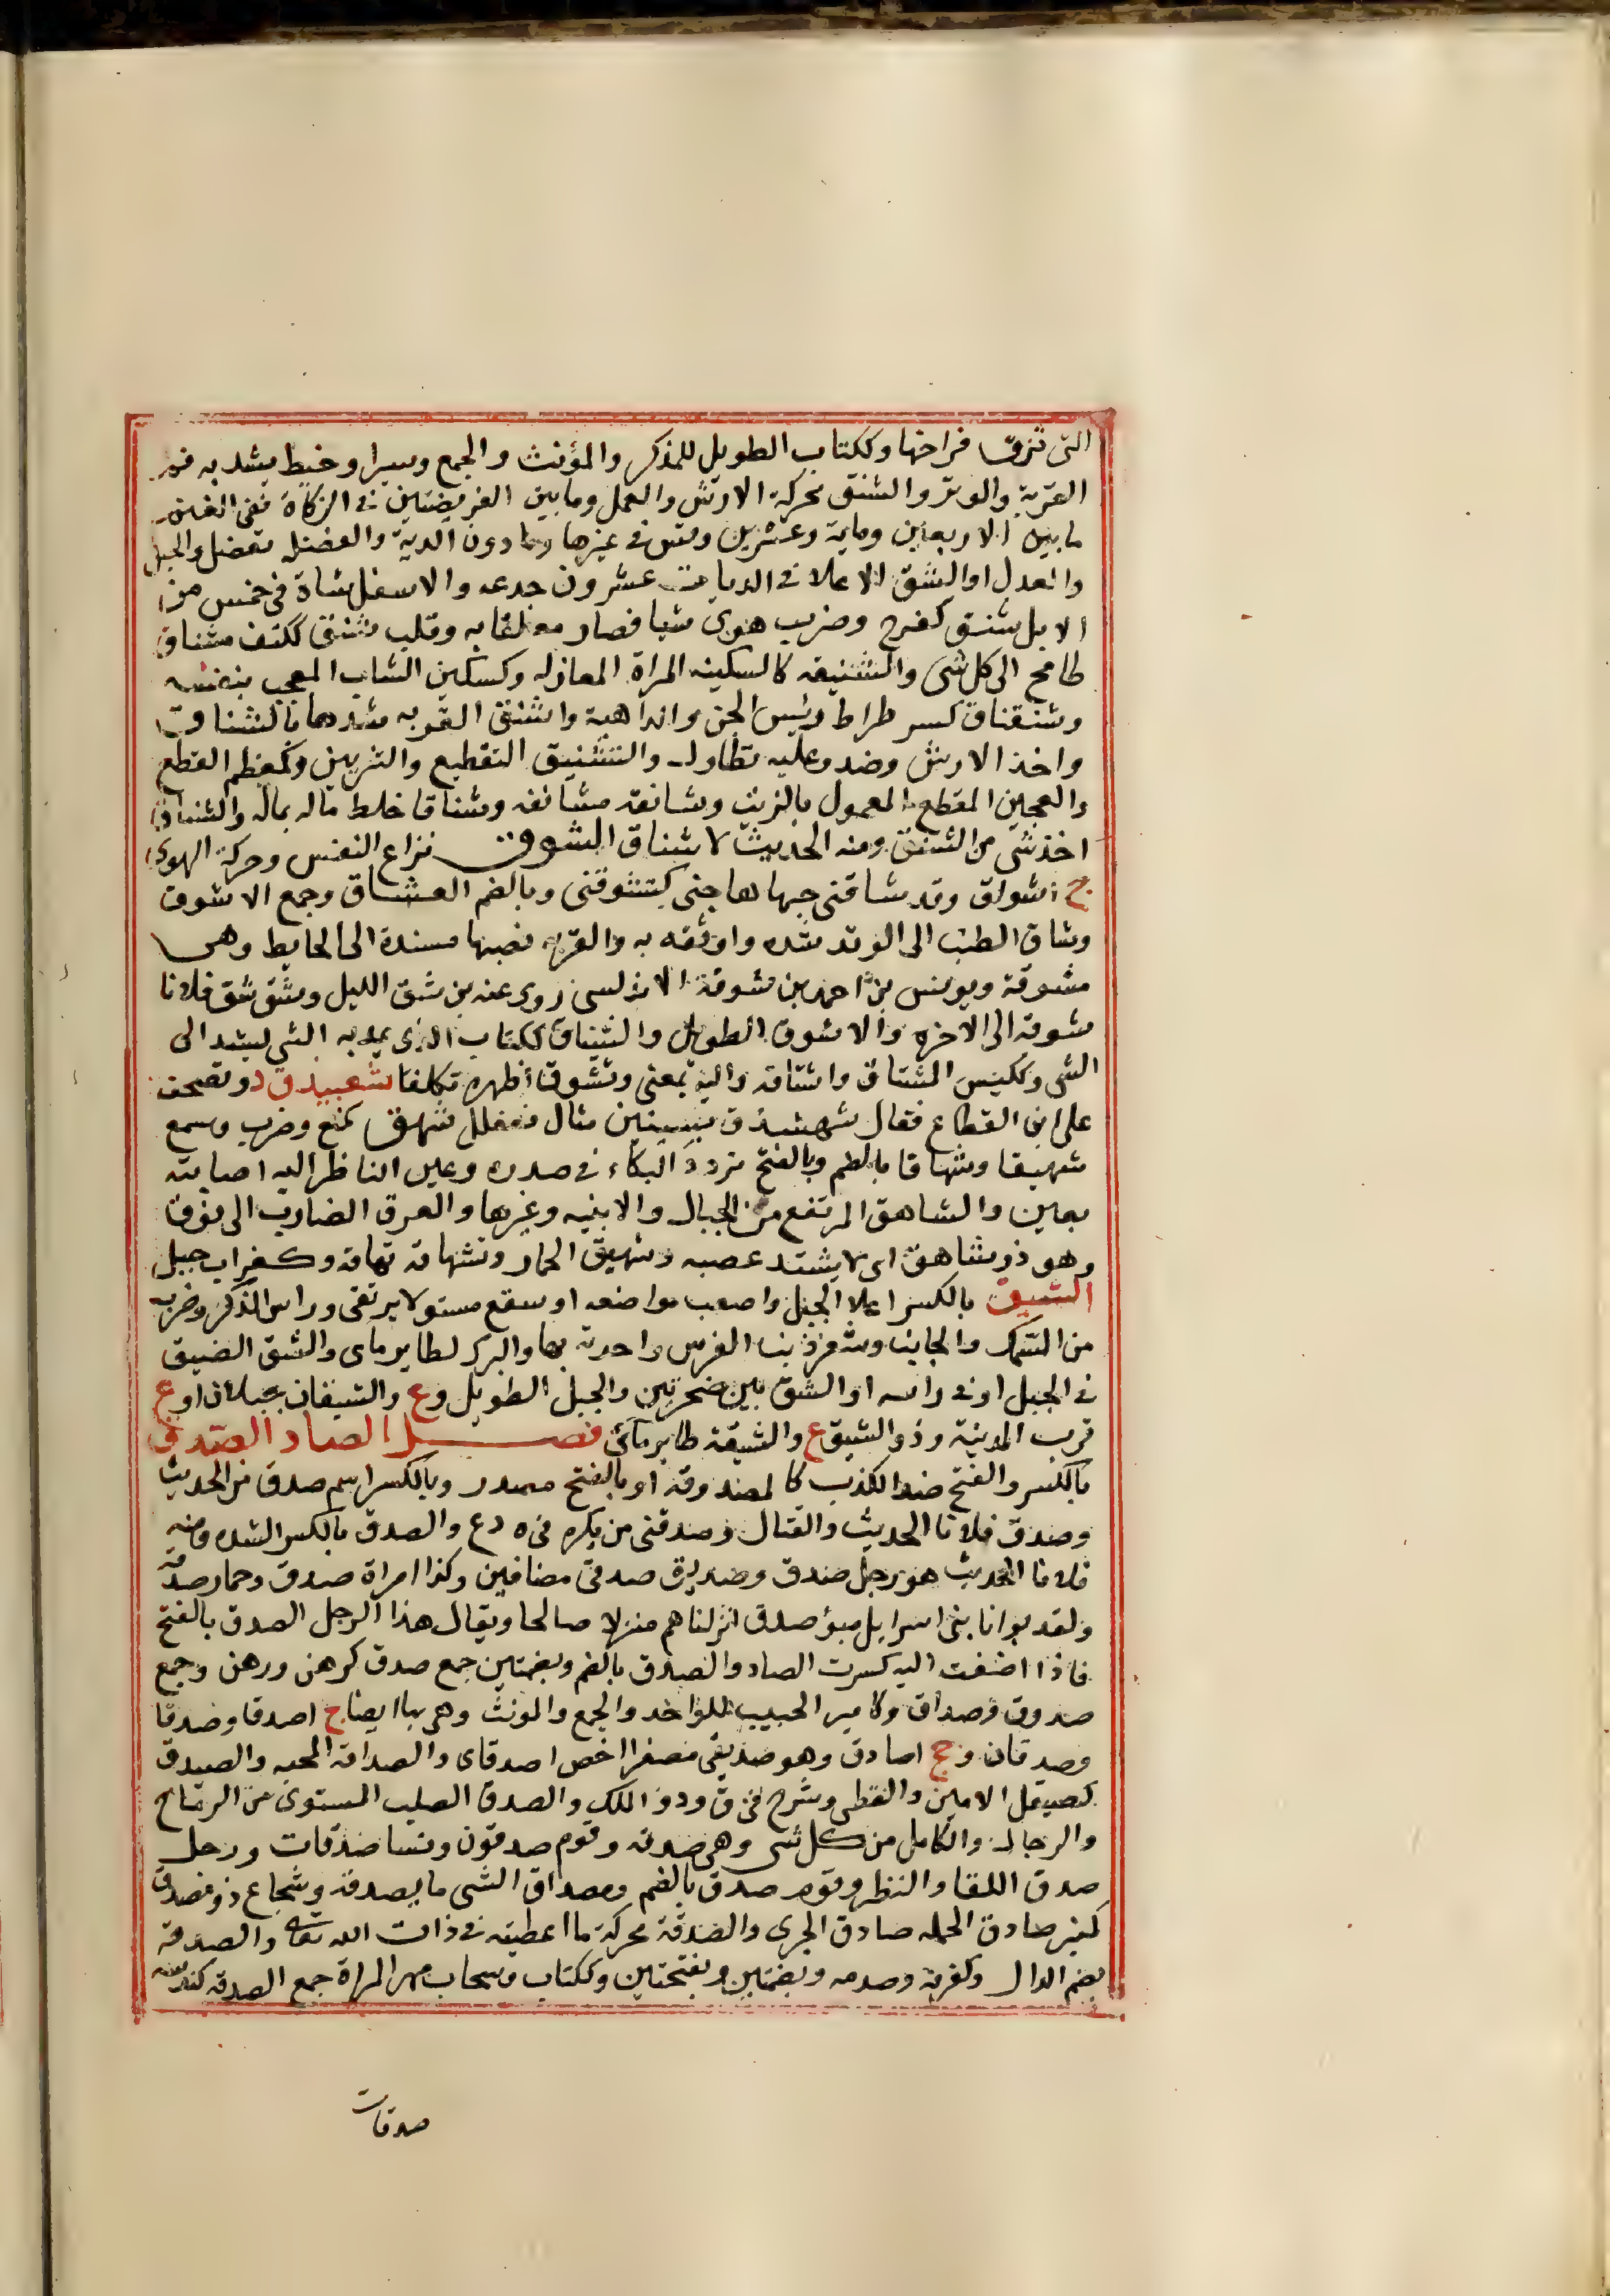 التى تزق فراخها وككتاب الطويل للمذكر والمؤنث والجمع وسيرا وخيط يشد به فم
القربة والوتر والشنق محركة الارش والعمل وما بين الفريضتين فى الزكاة ففى الغنم
ما بين الاربعين وماية وعشرين وقس فى غيرها وما دون الدية والفضله تفضل والحبل
والعدل او الشنق الاعلا فى الديات عشرون جدعه والاسفل شاة فى خمس من
الابل شنق كفرح وضرب هوى شيا فصار معلقا به وقلب شنق ككتف مشتاق
طامح الى كل شى والشنيقه كالسكينه المراة المغازله وكسكين الشاب المعجب بنفسه
وشنقناق كسرطراط رئيس الجن والداهية واشنق القربه شدها بالشناق
واخذ الارش وضد وعليه تطاول والتشنيق التقطيع والتزيين وكمعظم القطع
والعجين المقطع المعمول بالزيت وشانقه مشانقه وشناقا خلط ماله بماله والشناق
اخذ شى من الشنق ومنه الحديث لا شناق الشوق نزاع النفس وحركة الهوى
ج اشواق وقد شاقنى حبها هاجنى كشوقنى وبالضم العشاق وجمع الاشوق
وشاق الطنب الى الوتد شده واوثقه به والقربه نصبها مسندة الى الحايط وهى
مشوقة ويونس بن احمد بن شوقة الاندلسى روى عنه بن شق الليل وشق شق فلانا
شوقه الى الاخره والاشوق الطويل والشياق ككتاب الذى يمد به الشى ليشد الى
الشى وككيس المشتاق واشتاقه واليه بمعنى وتشوق اظهره تكلفا شعبيذق د وتصحف
على ابن القطاع فقال شهشذق بشينين مثال فعفلل شهق كمنع وضرب وسمع
شهيقا وشهاقا بالضم وبالفتح تردد البكاء فى صدره وعين الناظر اليه اصابته
بعين والشاهق المرتفع من الجبال والابنيه وغيرها والعرق الضارب الى فوق
وهو ذو شاهق اى لا يشتد غصبه وشهيق الحمار وتشهاقه نهاقه وكغراب جبل
الشيق بالكسر اعلا الجبل واصعب مواضعه او سقع مستو لا يرتقى وراس الذكر وضرب
من السمك والجانب وشعر ذنب الفرس واحدته بهاء والبرك لطاير ماى والشق الضيق
فى الجبل او فى راسه او الشق بين صخرتين والجبل الطويل وع والشيقان جبلان او ع
قرب المدينة وذو الشيق ع والشيقة طاير مائى فصـــل الصاد الصدق
بالكسر والفتح ضد الكذب كالمصدوقه او بالفتح مصدر وبالكسر اسم صدق فى الحديث
وصدق فلانا الحديث والقتال وصدقنى سن بكره فى ه د ع والصدق بالكسر الشده ومنه
فلانا الحديث هو رجل صدق وصديق صدق مضافين وكذا امراة صدق وحمار صدق
ولقد بوانا بنى اسرايل مبوؤ صدق انزلناهم منزلا صالحا ويقال هذا الرجل الصدق بالفتح
فاذا اضفت اليه كسرت الصاد والصدق بالضم وبضمتين جمع صدق كرهن ورهن وجمع
صدوق وصداق وكامير الحبيب للواحد والجمع والمونث وهى بها ايضا ج اصدقا وصدقا
وصدقان وجج اصادق وهو صديقى مصغرا اخص اصدقاى والصداقه المحبه والصيدق
كصيقل الامين والقطبى وشرح فى ق ود والملك والصدق الصلب المستوى من الرماح
والرجال والكامل من كل شى وهى صدقه وقوم صدقون ونسا صدقات ورجل
صدق اللقا والنظر وقوم صدق بالضم ومصداق الشى ما يصدقه وشجاع ذو مصدق
كمنبر صادق الحمله صادق الجرى والصدقة محركة ما اعطيته فى ذات الله تعالى والصدقة
بضم الدال وكغرفة وصدمه وبضمتين وبفتحتين وككتاب وسحاب مهر المراة جمع الصدقه كندسه
صدقات